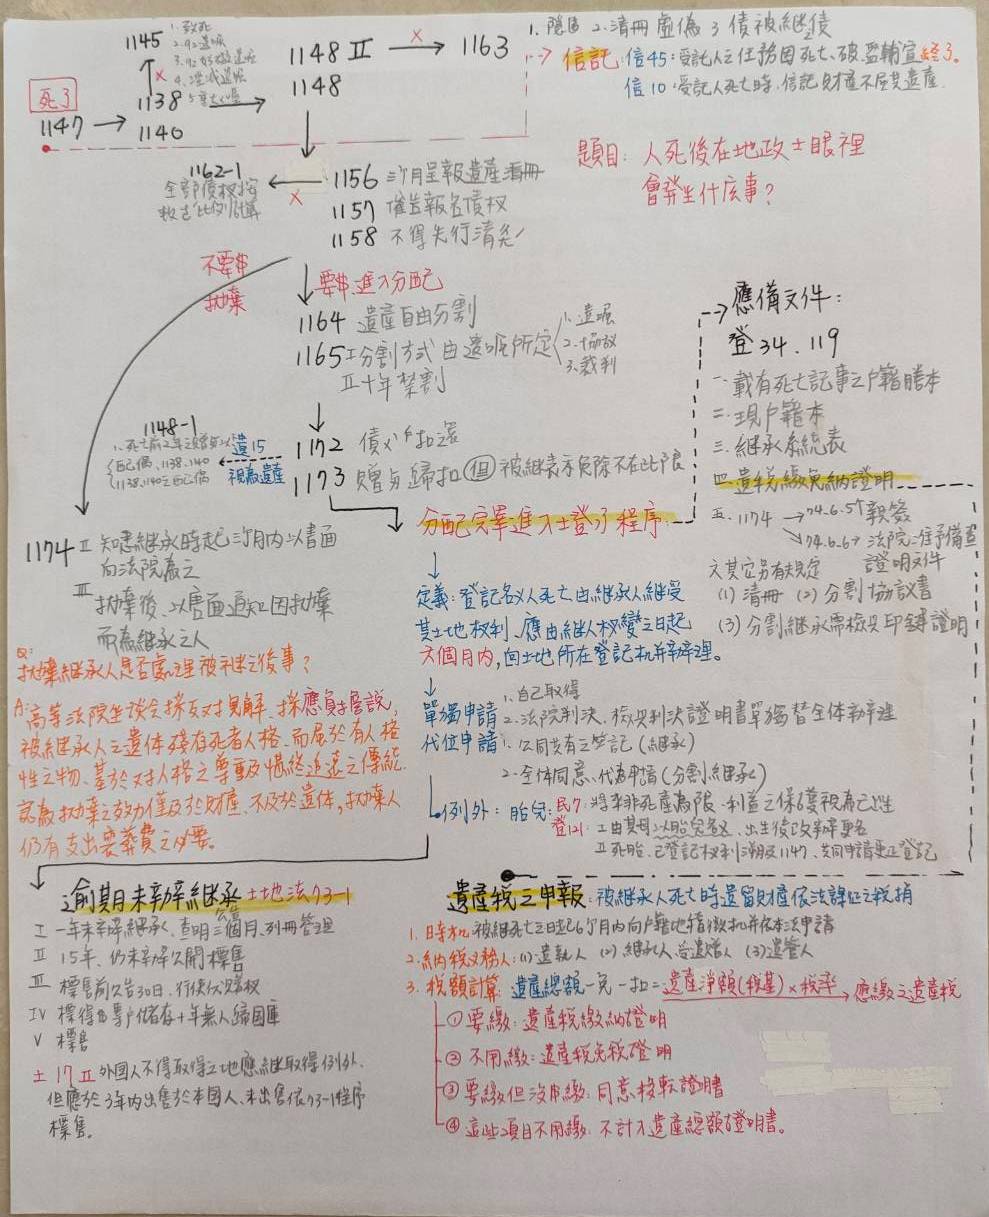 1145
1. 致死
1148 II
×
1163
1. 隱匿 2. 清冊虛偽 3 債被繼債
死了
1147
1138
1140
1148
信託: 信45: 受託人之任務因死亡、破、監輔宣終了。
信10: 受託人死亡時, 信託財產不屬其遺產.
題目: 人死後在地政士眼裡
會發生什麼事?
1162-1
全部債權按
比例計算
×
1156 三個月呈報遺產清冊
1157 催告報名債權
1158 不得先行清炎
不要
拋棄
要 進入分配
1164 遺產自由分割
1165 I 分割方式由遺囑所定
1. 遺囑
2. 協議
3. 裁判
II 十年禁割
應備文件:
登34、119
一 載有死亡記事之戶籍謄本
二 現戶籍本
三 繼承系統表
四 遺稅繳免納證明
五 1174
74.6.5前 親簽
74.6.6後 法院准予備查
證明文件
六 其它另有規定
(1) 清冊 (2) 分割協議書
(3) 分割繼承需檢具印鑑證明
1148-1
1. 死亡前2年之贈與以
配偶、1138.1140
1138.1140之配偶
遺15
視為遺產
1172 債 扣還
1173 贈與歸扣 但 被繼表示免除不在此限
分配完畢進入土登了程序
1174 II 知悉繼承時起三個月內以書面
向法院為之
III 拋棄後、以書面通知因拋棄
而為繼承之人
Q:
拋棄繼承人是否處理被繼之後事?
A: 高等法院座談會採反對見解、採應負擔說,
被繼承人之遺體殘存死者人格、而屬於有人格
性之物、基於對人格之尊重及慎終追遠之傳統
認為拋棄之效力僅及於財產、不及於遺體, 拋棄人
仍有支出喪葬費之必要。
定義: 登記名義人死亡, 由繼承人繼受
其土地權利、應由繼人權變之日起
六個月內, 向土地所在登記機關辦理。
單獨申請
1. 自己取得
2. 法院判決、檢具判決證明書單獨替全體辦理
代位申請
1. 公同共有之登記 (繼承)
2. 全體同意、代為申請 (分割繼承)
例外: 胎兒: 民7: 將來非死產為限、利益之保護視為已生
登121: I 由其母以胎兒名義、出生後改辦更名
II 死胎、已登記權利溯及1147、共同申請更正登記
逾期未辦繼承 土地法73-1
I 一年未辦繼承、查明三個月、列冊管理
II 15年、仍未辦公開標售
III 標售前公告30日、行使優購權
IV 標得 專戶儲存十年無人歸國庫
V 標售
土17 II 外國人不得取得之地應繼取得例外.
但應於3年內出售於本國人、未出售依73-1程序
標售。
遺產稅之申報: 被繼承人死亡時遺留財產依法課征之稅捐
1. 時機: 被繼死亡之日起6個月內向戶籍地稽徵機關依本法申請
2. 納稅義務人: (1) 遺執人 (2) 繼承人、受遺贈人 (3) 遺管人
3. 稅額計算: 遺產總額-免-扣=遺產淨額(稅基)×稅率 → 應繳之遺產稅
① 要繳: 遺產稅繳納證明
② 不用繳: 遺產稅免稅證明
③ 要繳但沒 繳: 同意移轉證明書
④ 這些項目不用繳: 不計入遺產總額證明書。